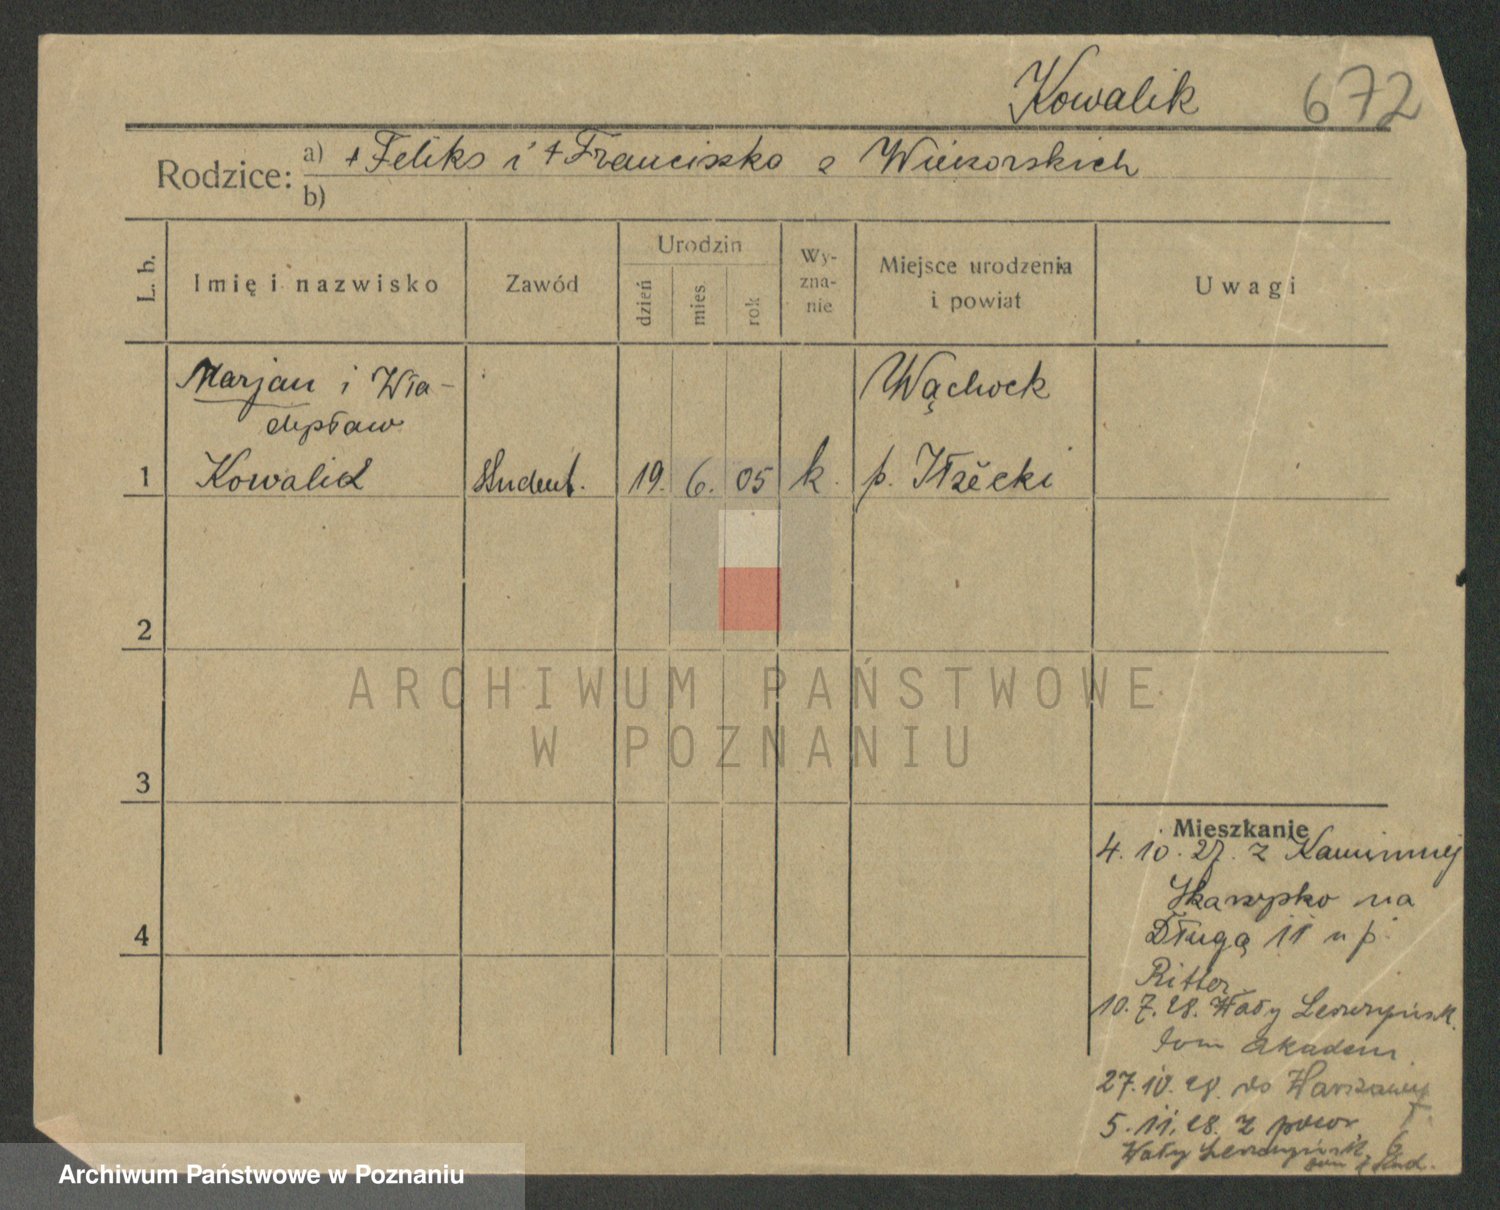 Kowalik 672
Rodzice: a) +Feliks i +Franciszka z Wieczorskich
b)
L. b. Imię i nazwisko Zawód Urodzin dzień mies. rok Wy-zna-nie Miejsce urodzenia i powiat Uwagi
Marjan i Wła- Wąchock
dysław
1 Kowalik student. 19. 6. 05 k. p. Iłżecki
2
3
4
Mieszkanie
4. 10. 27. z Kamiennej
Skarżysko na
Długą 11 u p.
Ritter
10. 7. 28. Wały Leszczyńsk.
dom akadem.
27. 10. 28. do Warszawy
5. 11. 28. z powr.
Wały Leszczyńsk.
ARCHIWUM PAŃSTWOWE
W POZNANIU
Archiwum Państwowe w Poznaniu